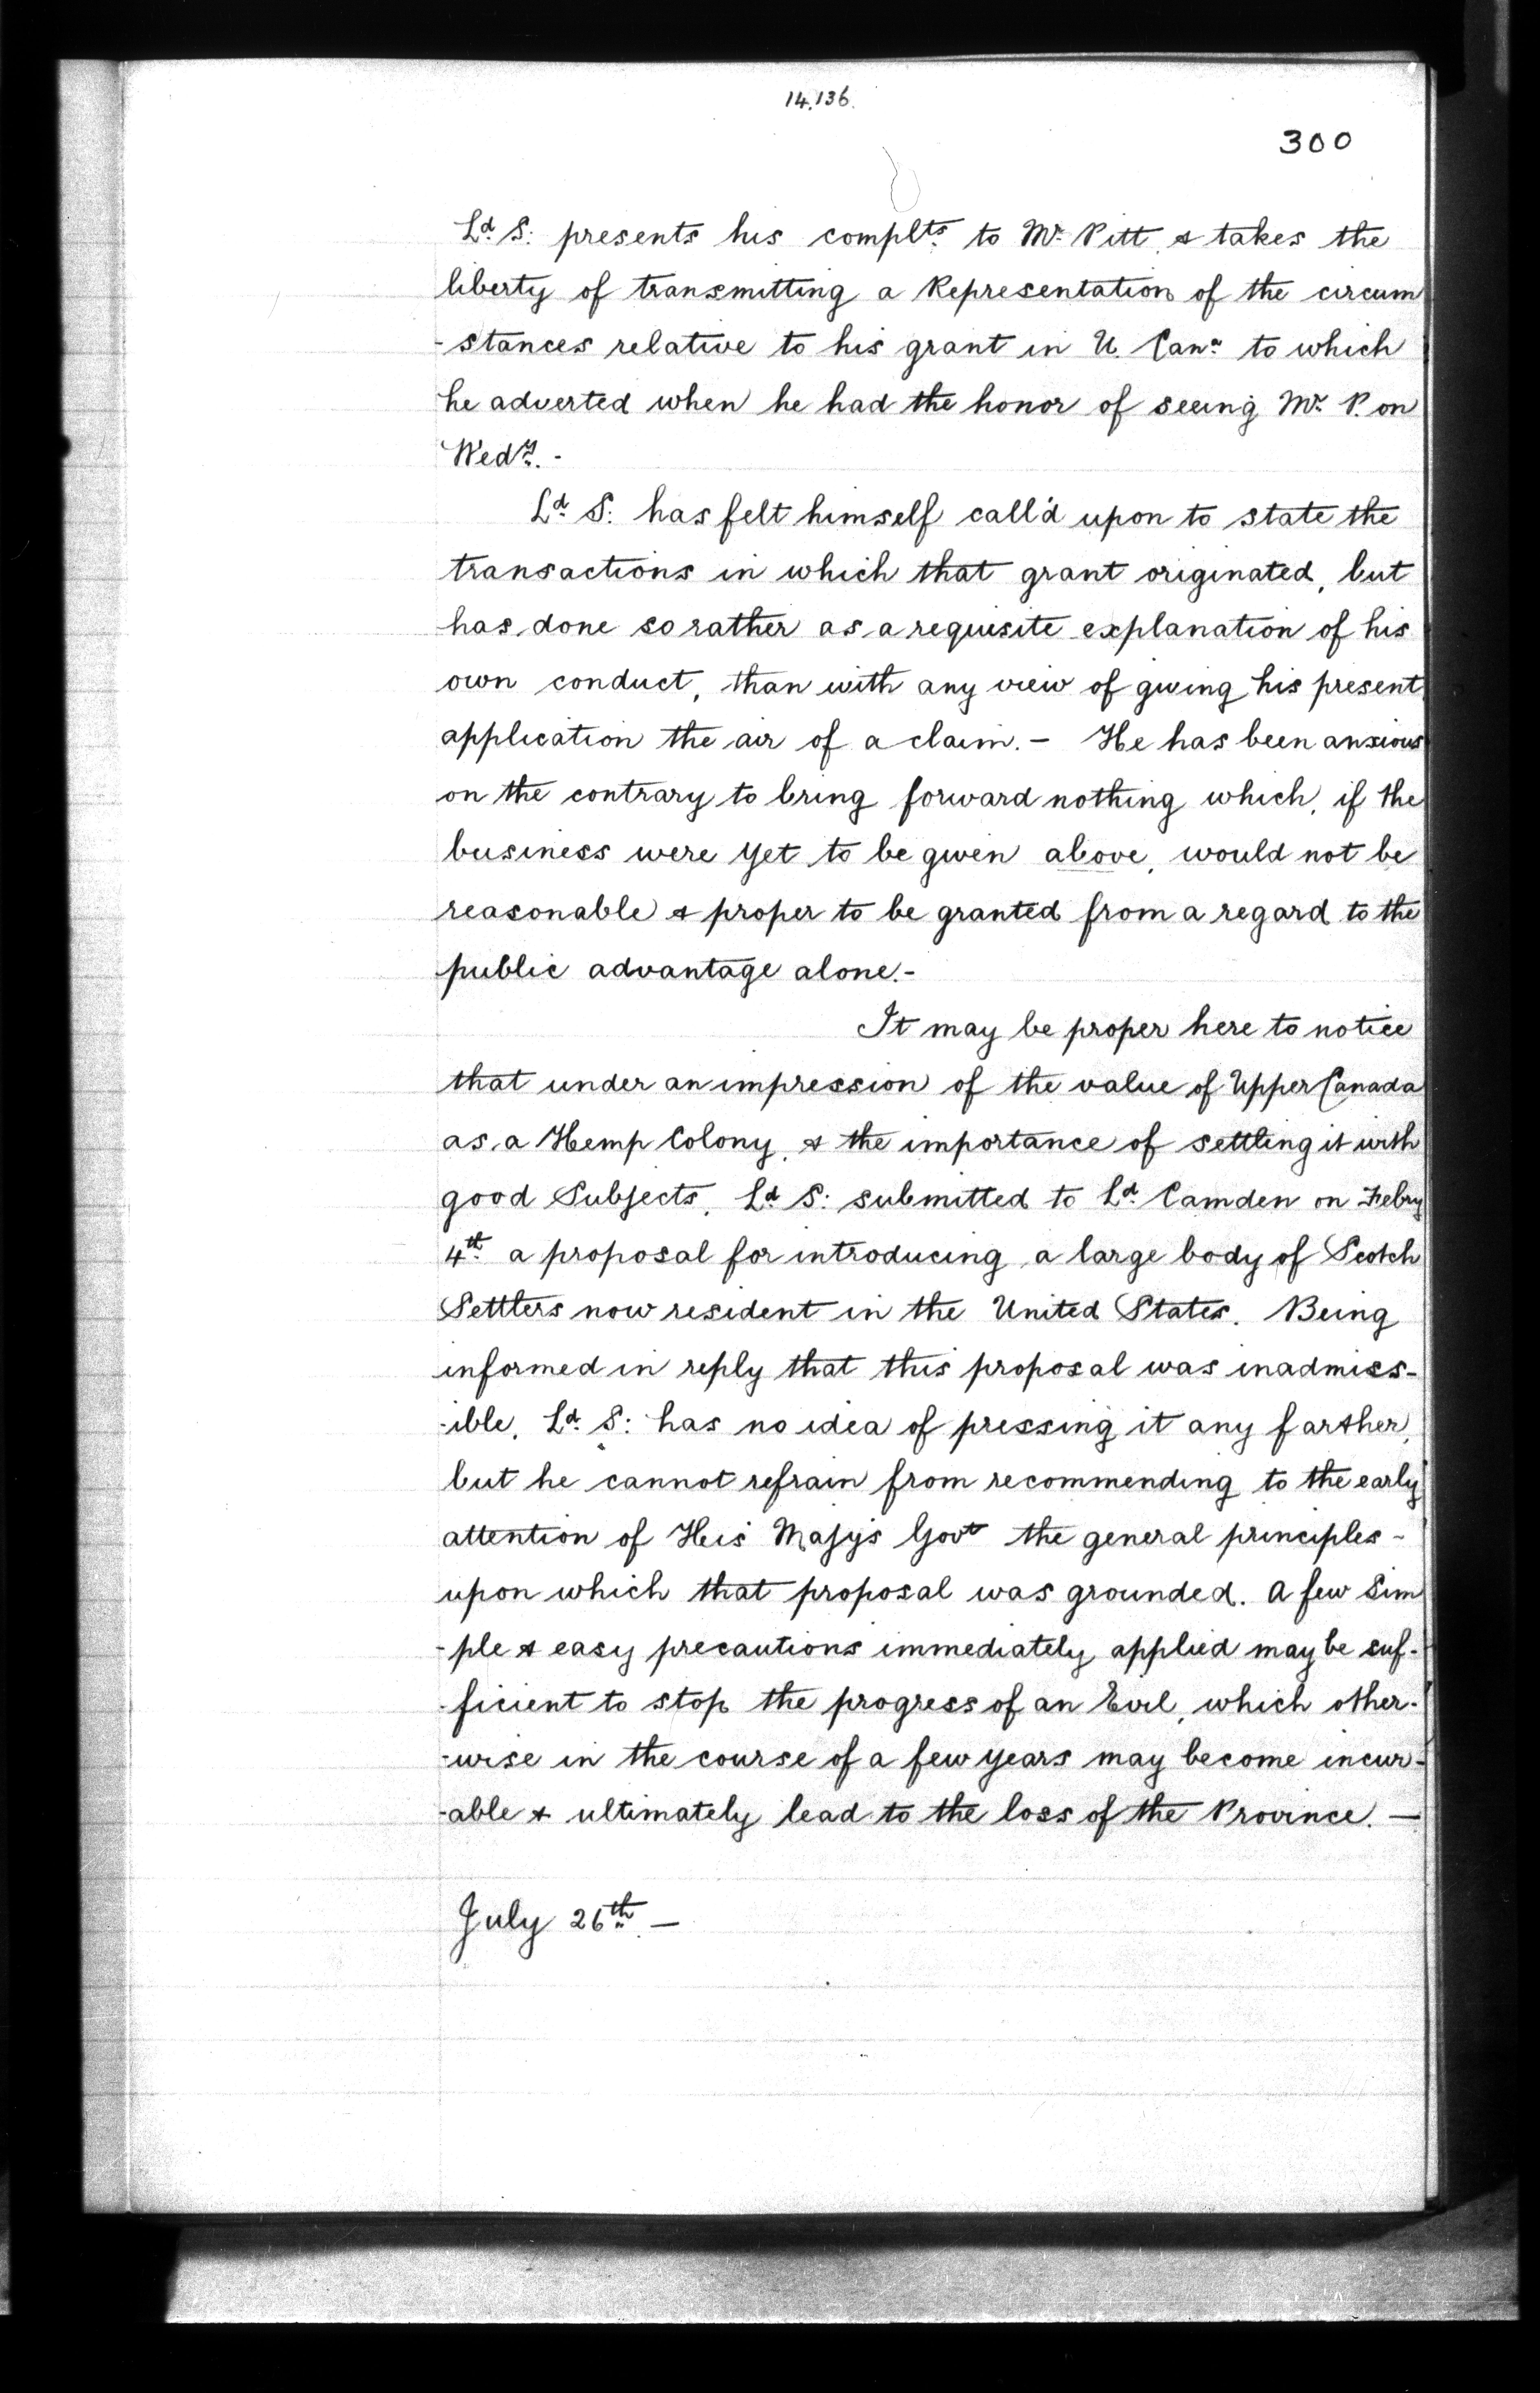 14,136.
300
Ld. S: presents his complts. to Mr. Pitt, & takes the
liberty of transmitting a Representation of the circum
-stances relative to his grant in U. Cana. to which
he adverted when he had the honor of seeing Mr. P. on
Wedy. -
Ld. S: has felt himself call'd upon to state the
transactions in which that grant originated, but
has done so rather as a requisite explanation of his
own conduct, than with any view of giving his present
application the air of a claim. - He has been anxious
on the contrary to bring forward nothing which, if the
business were yet to be given above, would not be
reasonable & proper to be granted from a regard to the
public advantage alone. -
It may be proper here to notice
that under an impression of the value of Upper Canada
as a Hemp Colony, & the importance of settling it with
good Subjects, Ld. S: submitted to Ld. Camden on Febry
4th. a proposal for introducing a large body of Scotch
Settlers now resident in the United States. Being
informed in reply that this proposal was inadmiss-
-ible, Ld. S: has no idea of pressing it any farther,
but he cannot refrain from recommending to the early
attention of His Majys Govt the general principles -
upon which that proposal was grounded. A few Sim
-ple & easy precautions immediately applied may be suf-
-ficient to stop the progress of an Evil, which other-
-wise in the course of a few years may become incur-
-able & ultimately lead to the loss of the Province. —
July 26th. —